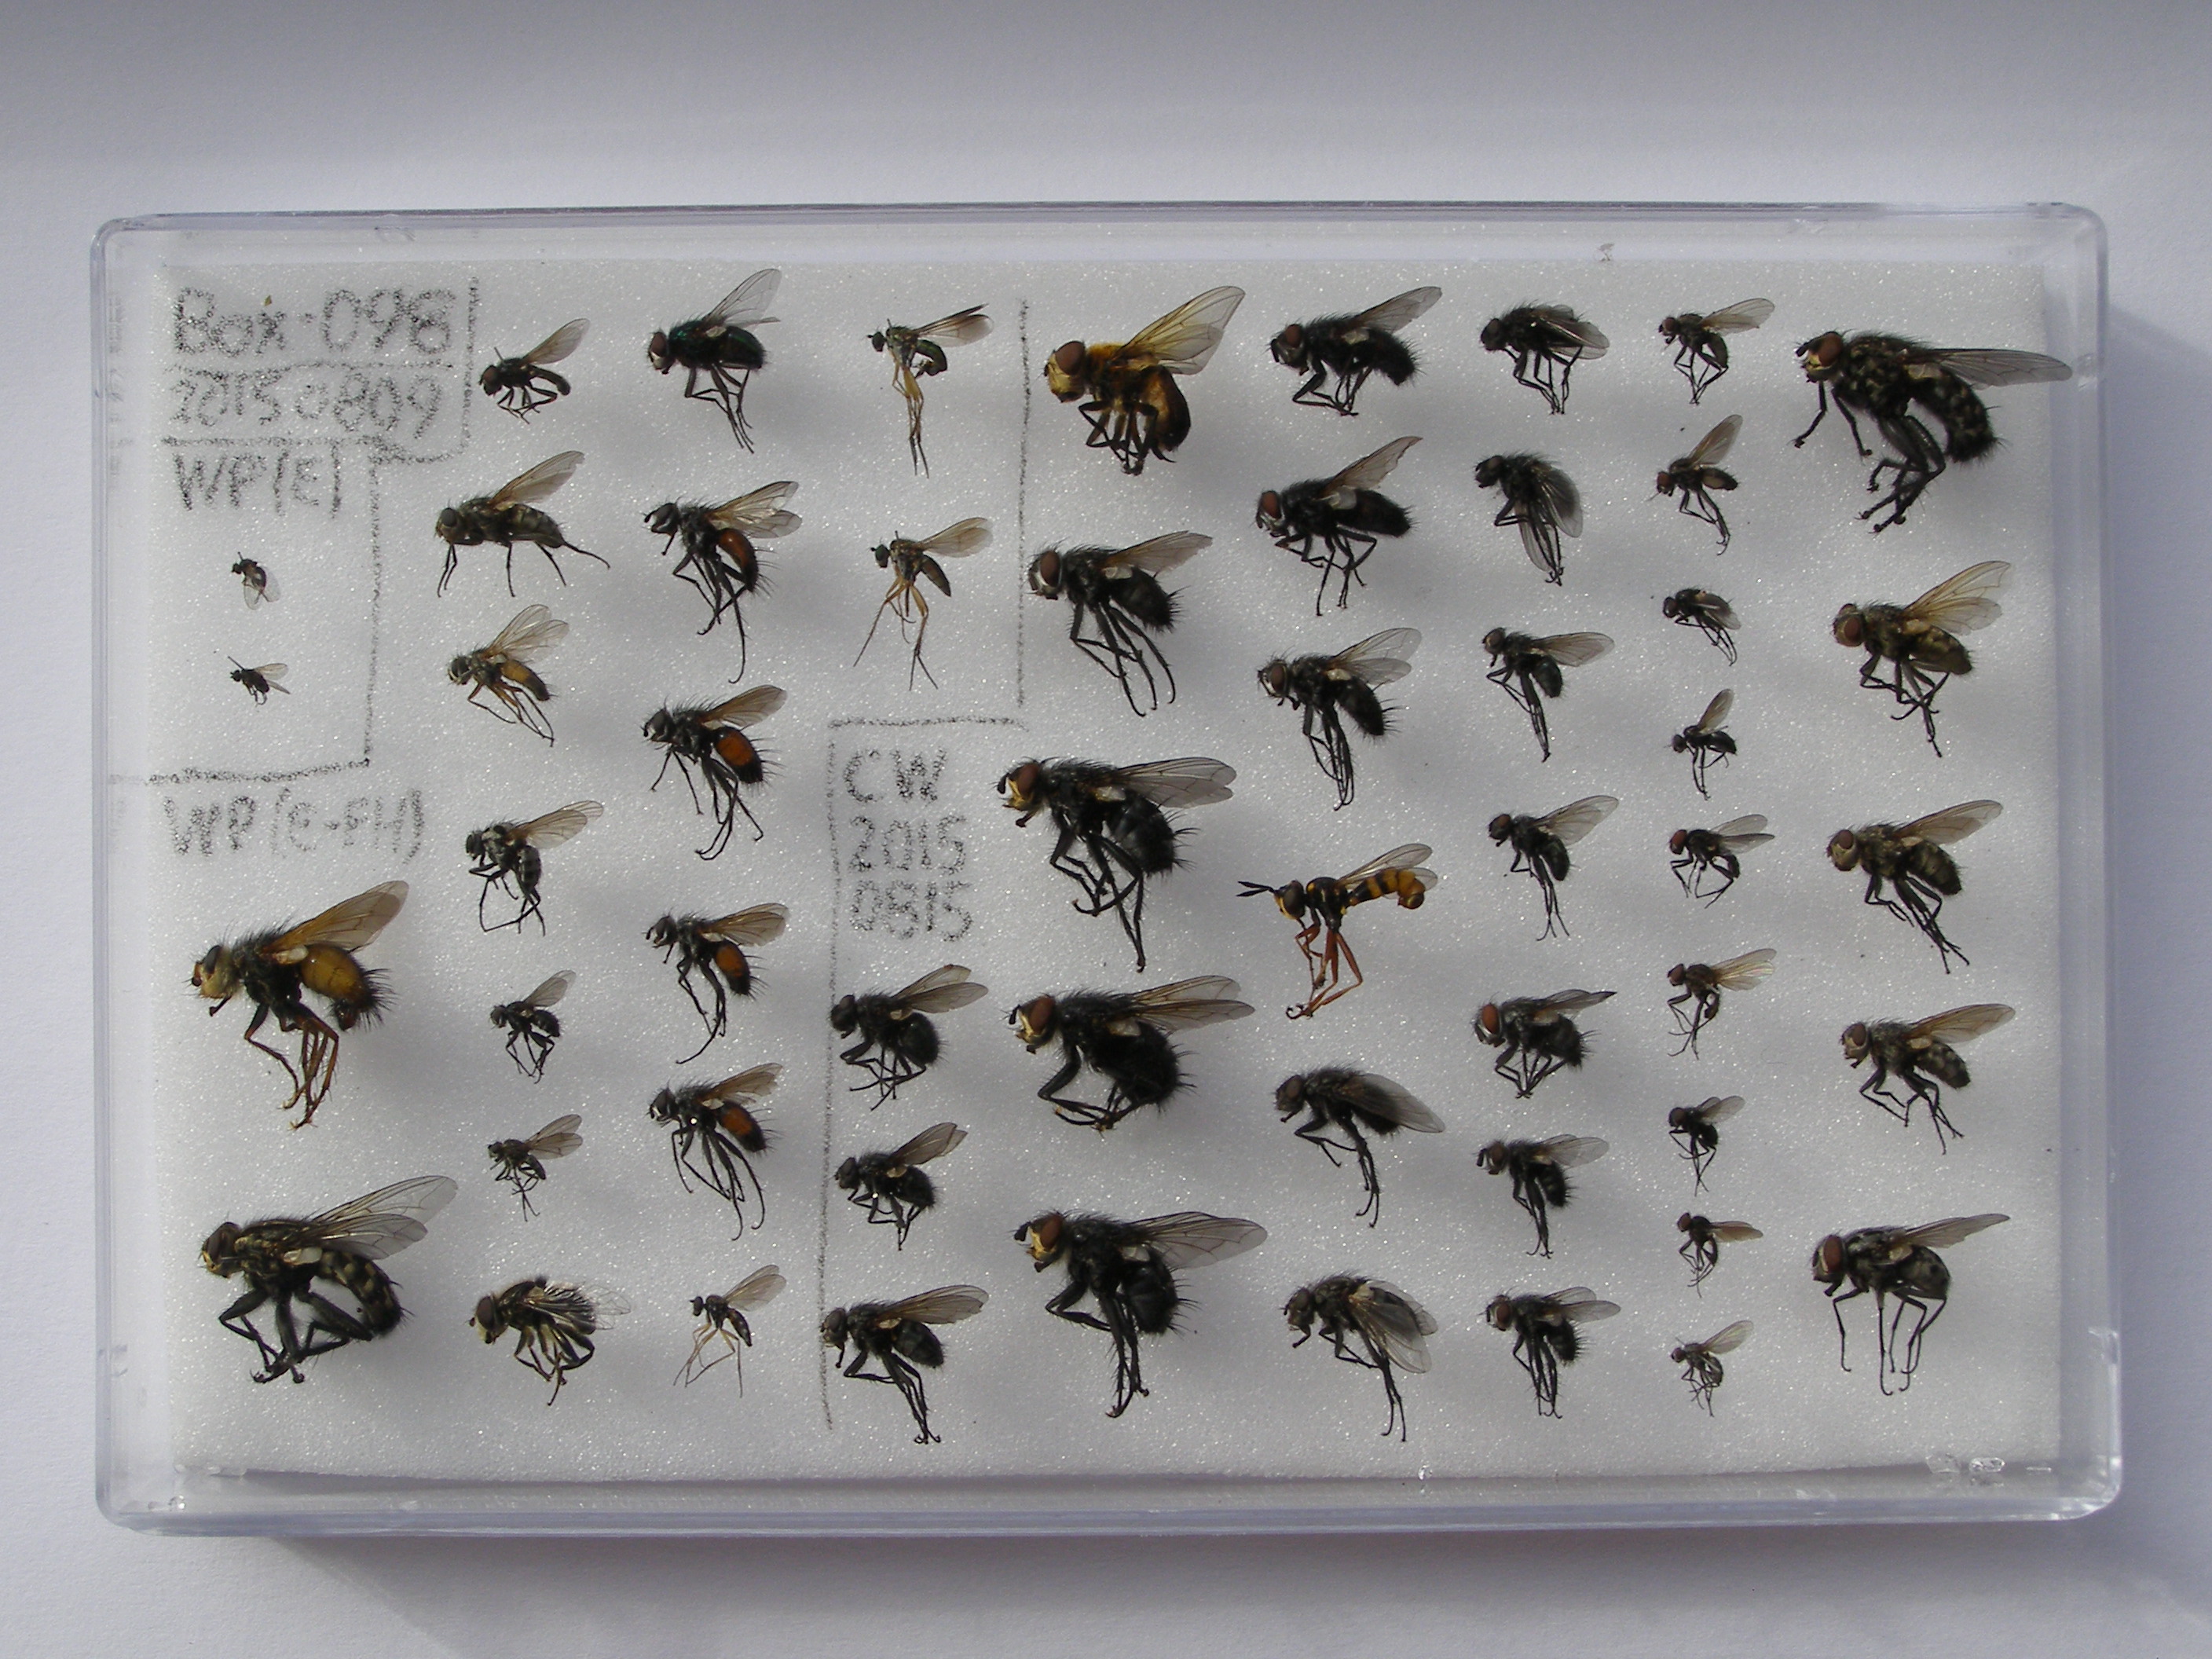 Box-096
20150809
WP(E)
WP(E-FH)
CW
2015
0815